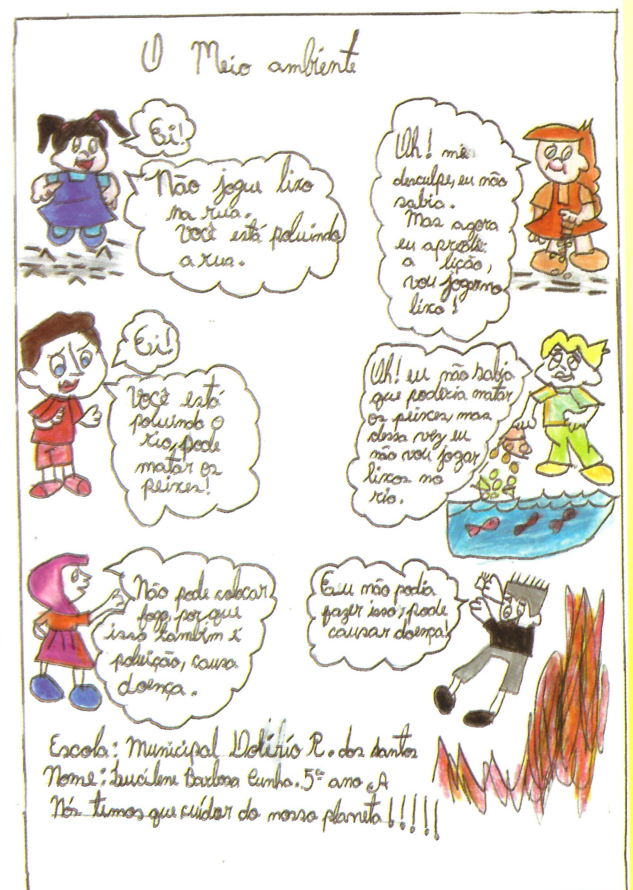 O Meio ambiente
Ei!
Não jogue lixo
na rua.
Você está poluindo
a rua.
Uh! me
desculpe, eu não
sabia.
Mas agora
eu aprendi
a lição,
vou jogar no
lixo!
Ei!
Você está
poluindo o
rio, pode
matar os
peixes!
Uh! eu não sabia
que poderia matar
os peixes, mas
dessa vez eu
não vou jogar
lixos no
rio.
Não pode colocar
fogo, por que
isso também é
poluição, causa
doença.
Eu não podia
fazer isso, pode
causar doença!
Escola: Municipal R. dos Santos
Nome: Lucilene Barbosa Cunha. 5º ano A
Nós temos que cuidar do nosso planeta!!!!!